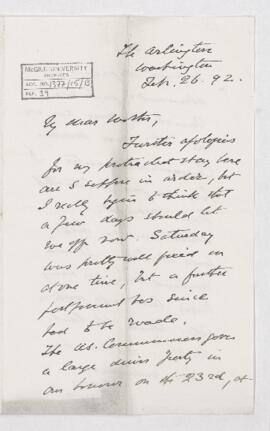 The Arlington
Washington
Feb. 26. 92.
McGILL UNIVERSITY
ARCHIVES
ACC. NO. 1377/15/13
REF. 39
My dear
Further apologies
for my protracted stay here
are I suppose in order, but
I really begin to think that
a few days should let
me off now. Saturday
was pretty well fixed in
at one time, but a further
postponement has since
had to be made.
The U.S. Commissioners gave
a large dinner party in
our honour on the 23rd, at-